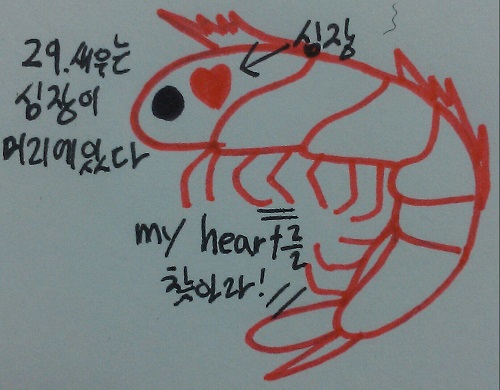 29. 새우는
심장이
머리에있다
심장
my heart를
찾아라!